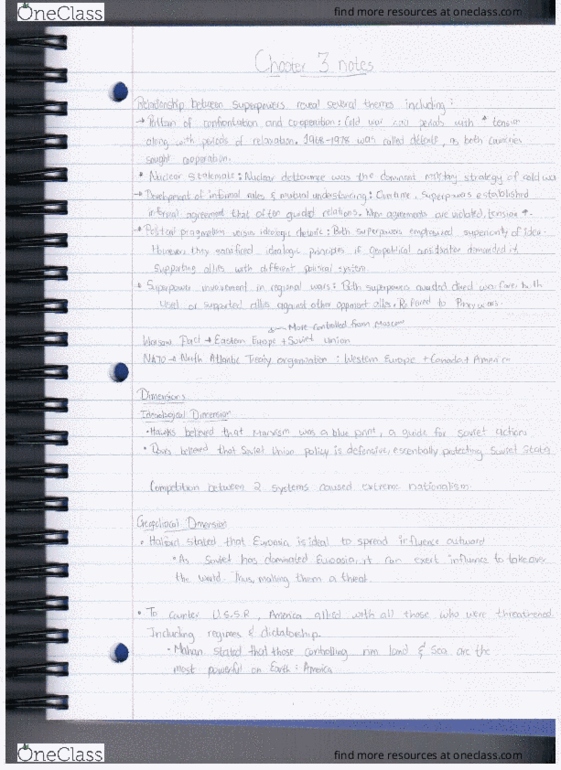 OneClass
find more resources at oneclass.com
Chapter 3 notes
Relationship between superpowers reveal several themes including:
→ Pattern of confrontation and cooperation: Cold war had periods with ↑ tension
along with periods of relaxation. was called detente, as both countries
sought cooperation.
• Nuclear Stalemate: Nuclear deterrence was the dominant military strategy of cold wa
→ Development of informal rules & mutual understanding: Overtime, superpowers established
informal agreement that often guided relations. When agreements are violated, tension ↑.
• Political pragmatism versus ideologic beliefs: Both superpowers emphasized superiority of idea
However, they sacrificed ideologic principles if geopolitical demanded it
Supporting allies with different political system
• Superpower involvement in regional wars: Both superpowers avoided direct warfare, both
used or supported allies against other opponent allies. Referred to Proxy wars.
More controlled from Moscow
Warsaw Pact → Eastern Europe + Soviet Union
NATO → North Atlantic Treaty organization: Western Europe + Canada + America
Dimensions
Ideological Dimension
• Hawks believed that Marxism was a blue print, a guide for Soviet actions
• Doves believed that Soviet Union policy is defensive, essentially protecting Soviet State
Competition between 2 systems caused extreme nationalism.
Dimension
• stated that Eurasia is ideal to spread influence outward
• As Soviet has dominated Eurasia, it can exert influence to takeover
the world. Thus, making them a threat.
• To counter U.S.S.R, America allied with all those who were threatened
Including regimes & dictatorship.
• Mahan stated that those controlling rim land & Sea are the
most powerful on Earth: America
OneClass
find more resources at oneclass.com